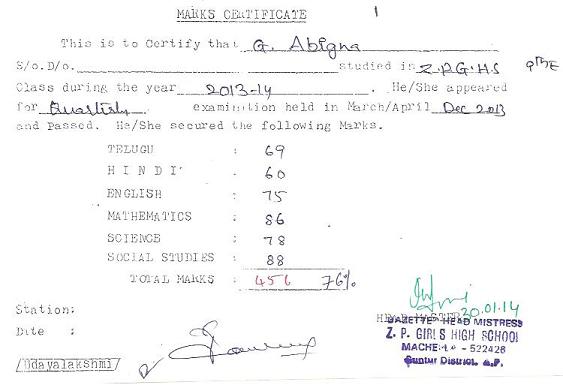 MARKS CERTIFICATE
This is to Certify that G. Abigna
S/o.D/o. studied in Z.P.G.HS 9th E
Class during the year 2013-14. He/She appeared
for examination held in March/April Dec 2013
and Passed. He/She secured the following Marks.
TELUGU : 69
HINDI : 60
ENGLISH : 75
MATHEMATICS : 86
SCIENCE : 78
SOCIAL STUDIES : 88
TOTAL MARKS : 456 76%
Station:
Date :
20.01.14
HEAD MASTER
GAZETTED HEAD MISTRESS
Z. P. GIRLS HIGH SCHOOL
- 522426
Guntur District, A.P.
/Udayalakshmi/